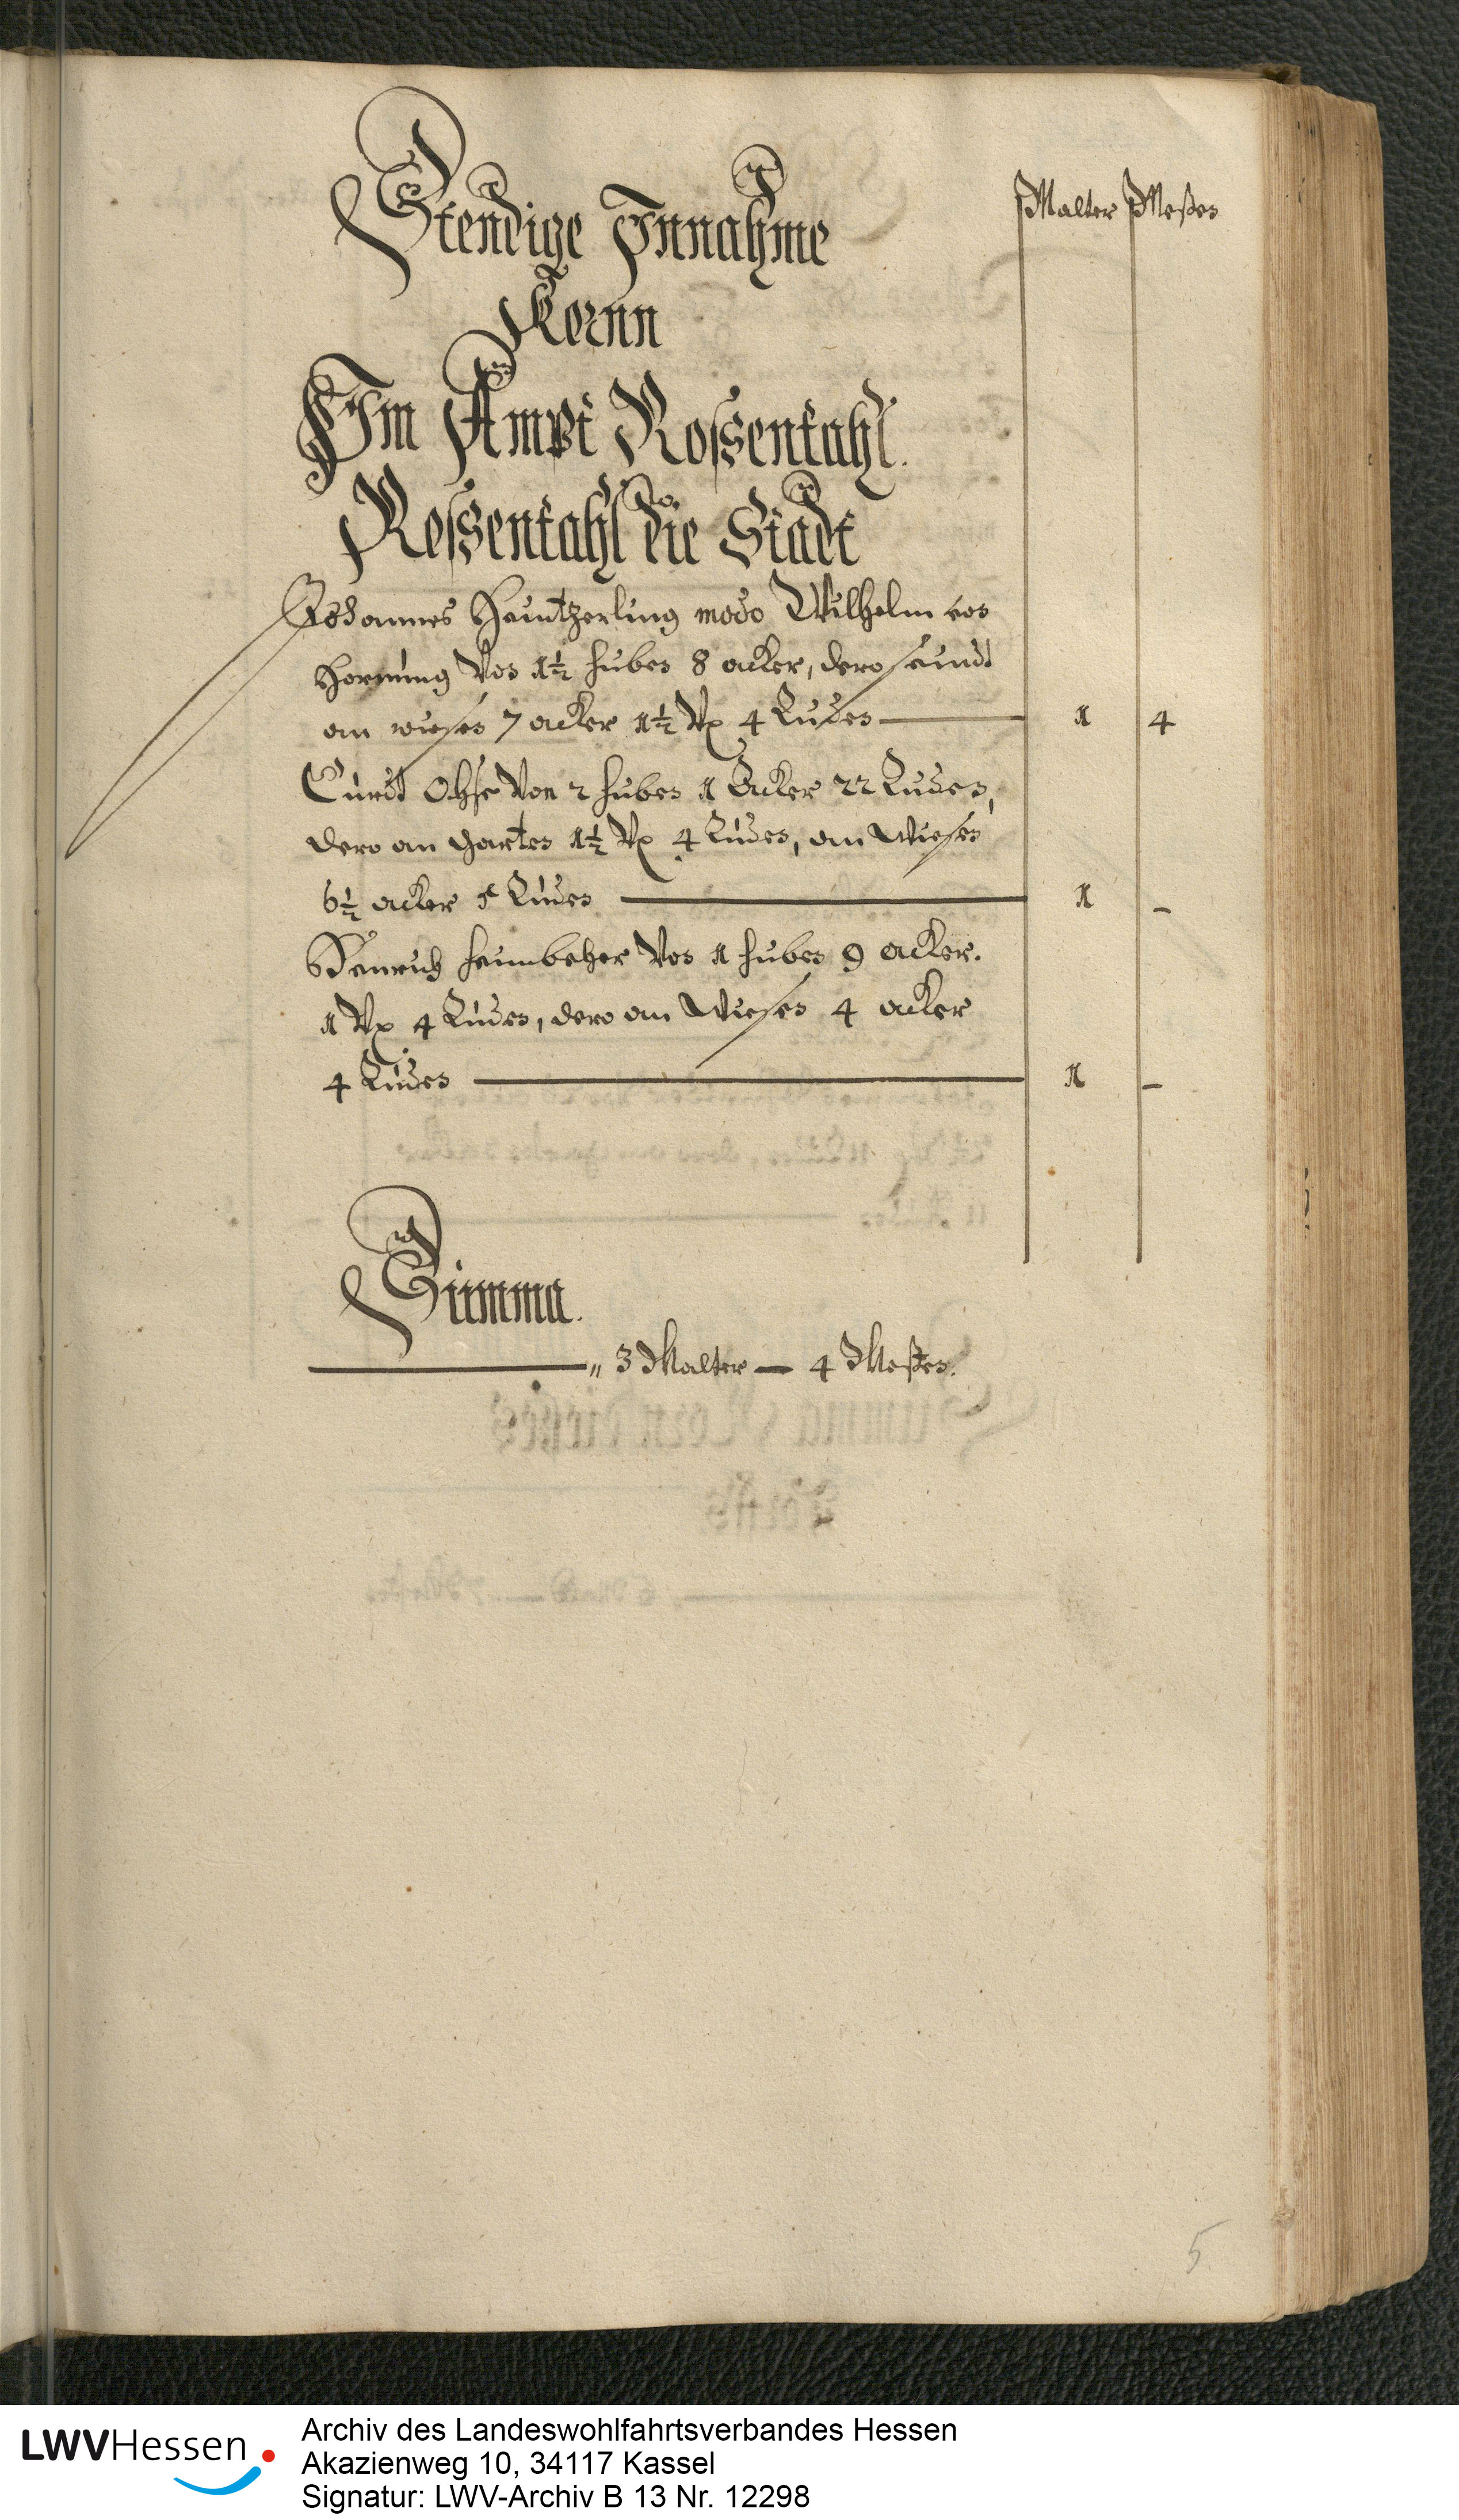 Malter Meßen
Stendige Innahme
Kornn
Im Ampt Roßentahl.
Roßentahl die Stadt
Johannes Heintzerling modo Wilhelm von
Hornung Von 1½ huben 8 acker, dero seindt
an wiesen 7 acker 1½ 4 Ruden — 1 4
Curdt Ochse Von 2 huben 1 Acker 22 Ruden,
dero an garten 1½ 4 Ruden, an Wiesen
6½ acker 5 Ruden — 1 –
Henrich heimbeher Von 1 huben 9 acker.
1 4 Ruden, dero an Wiesen 4 acker
4 Ruden — 1 –
Summa.
— „ 3 Malter — 4 Meßen.
5
LWVHessen
Archiv des Landeswohlfahrtsverbandes Hessen
Akazienweg 10, 34117 Kassel
Signatur: LWV-Archiv B 13 Nr. 12298